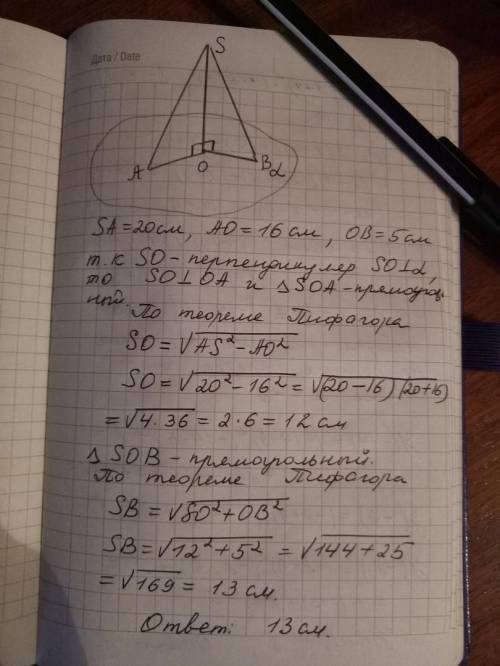 Дата / Date
S
A
O
B α
SA=20см, AO=16см, OB=5см
т.к SO-перпендикуляр SO⊥α,
то SO⊥OA и △SOA-прямоуголь
ный.
По теореме Пифагора
SO=√AS²-AO²
SO=√20²-16²=√(20-16)(20+16)
=√4·36=2·6=12см
△SOB-прямоугольный.
По теореме Пифагора
SB=√SO²+OB²
SB=√12²+5²=√144+25
=√169=13см.
Ответ: 13см.